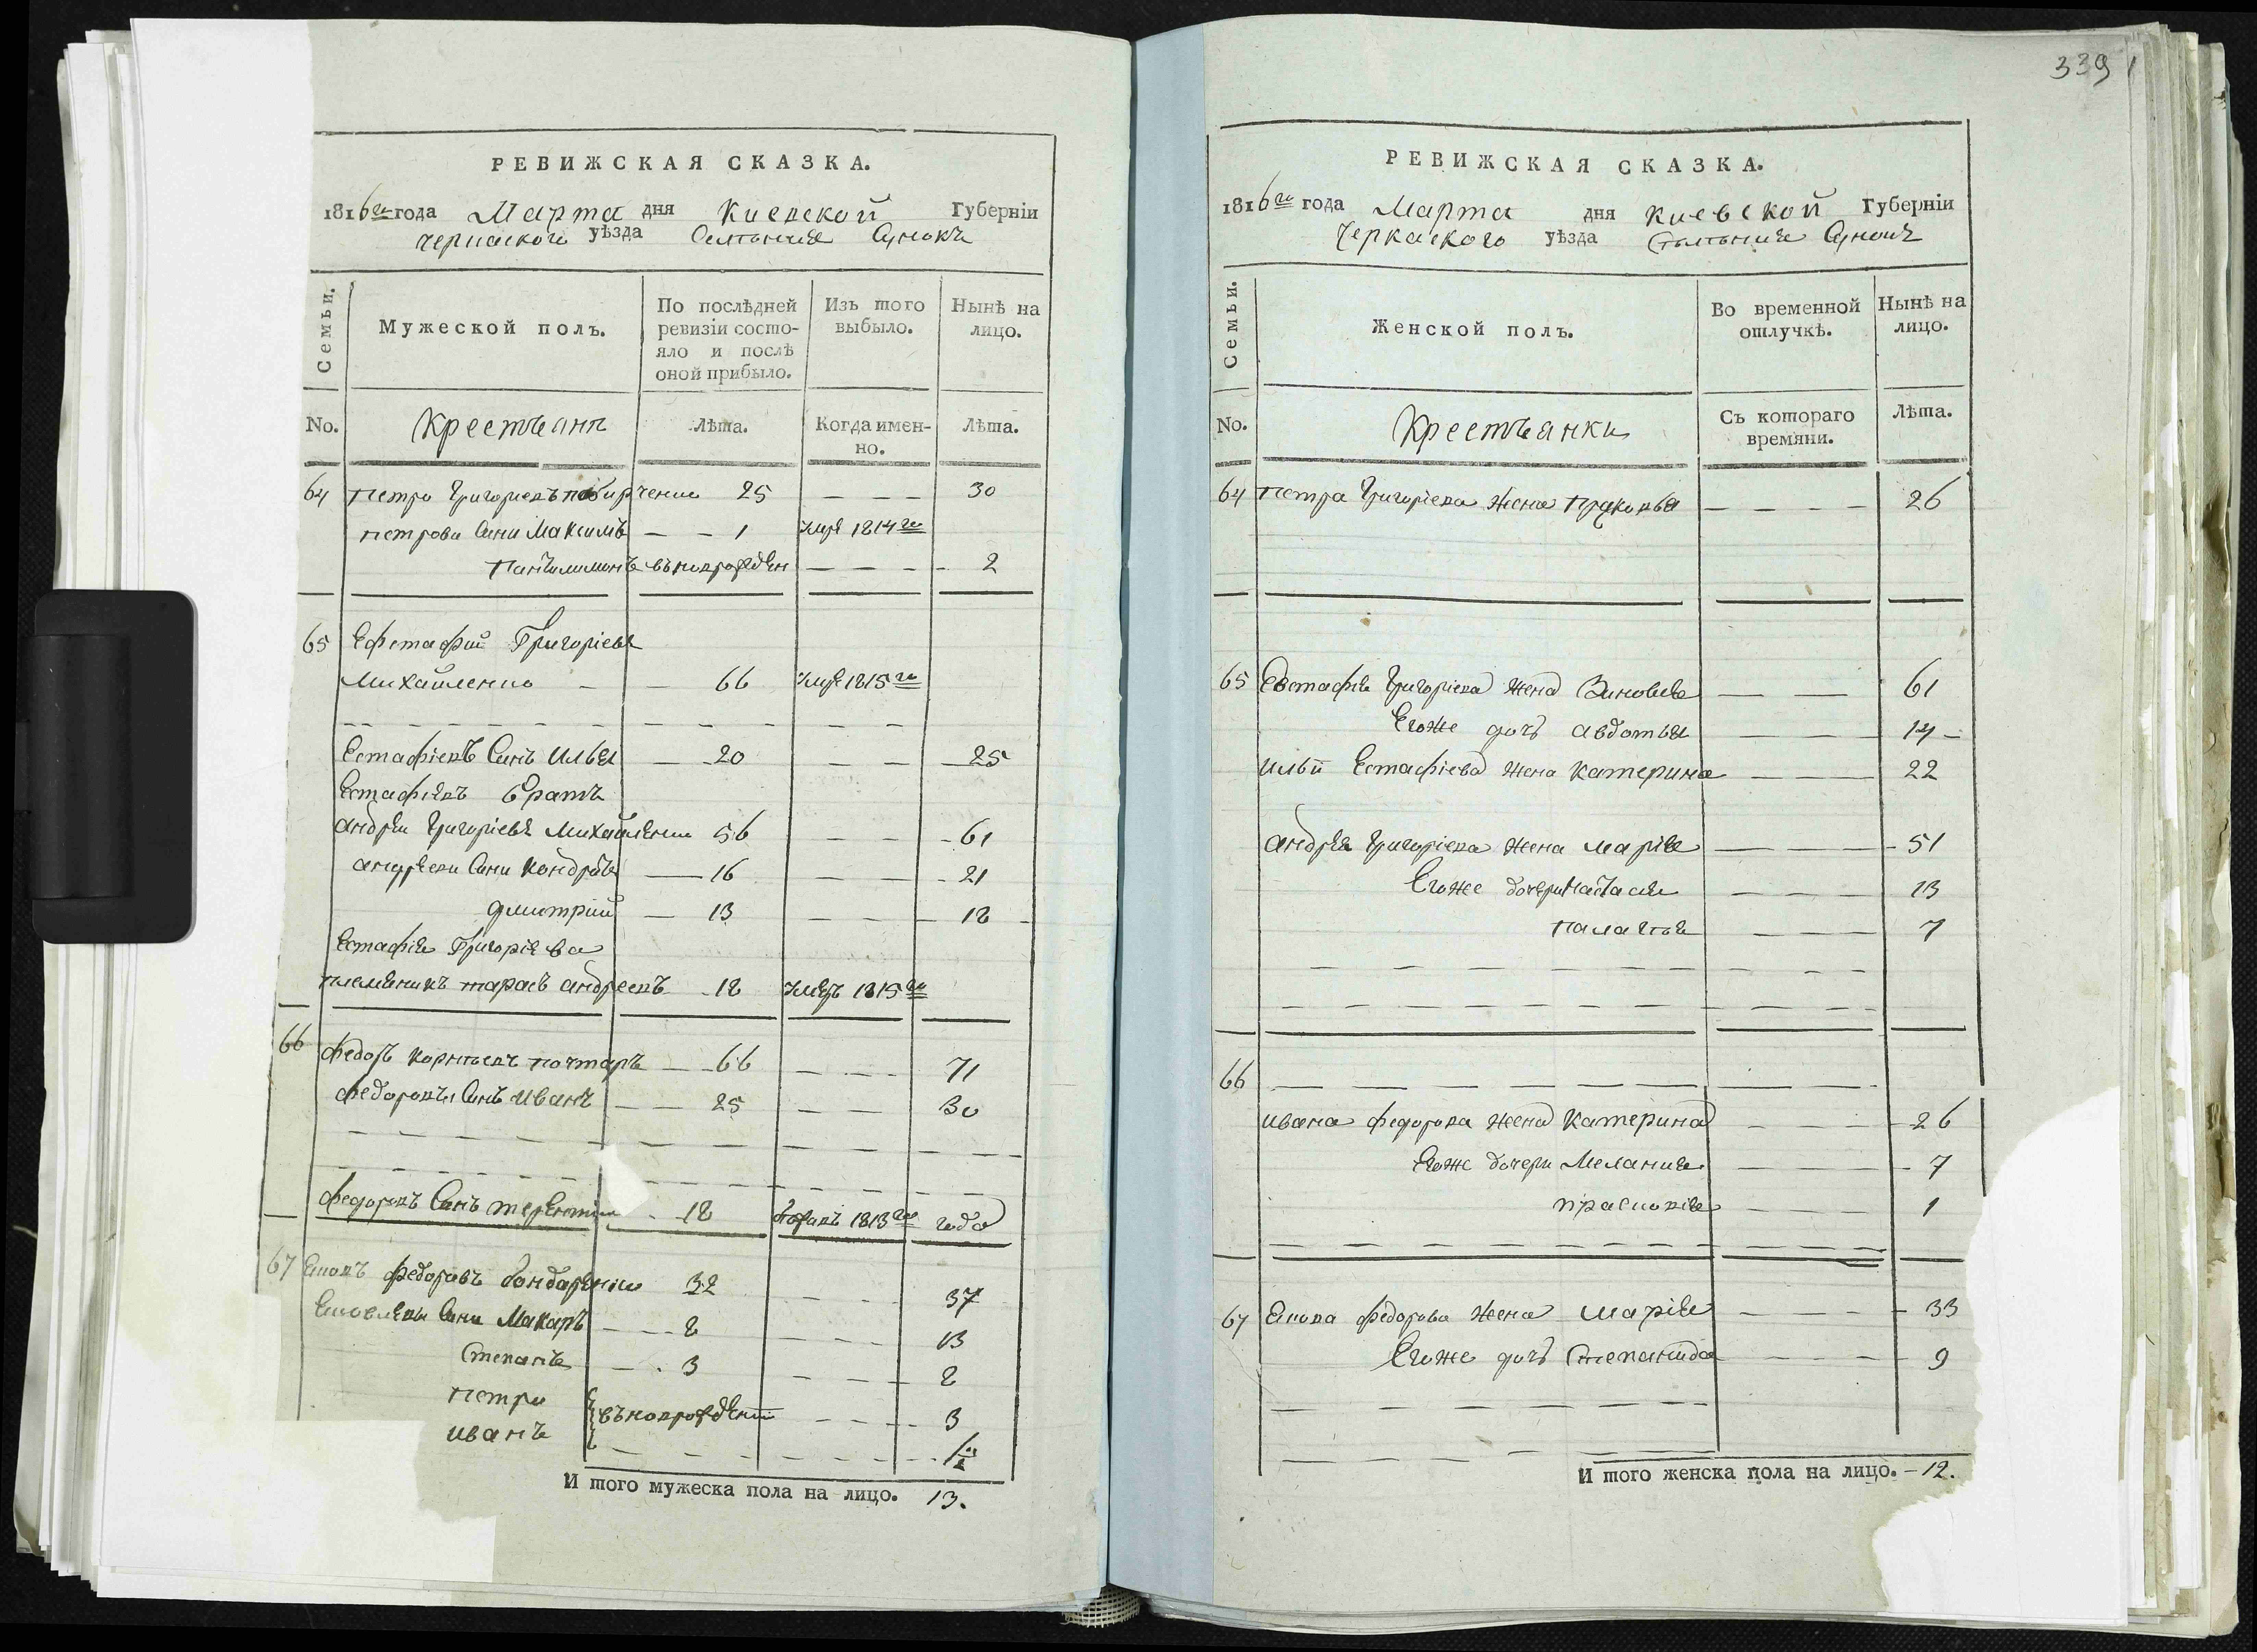 РЕВИЖСКАЯ СКАЗКА.
1816го года Марта дня Киевской Губерніи
Черкаского уѣзда
Семьи. Мужеской полъ. По послѣдней ревизіи состояло и послѣ оной прибыло. Изъ того выбыло. Нынѣ на лицо.
No. Крестьяни Лѣта. Когда именно. Лѣта.
64 Петро Григориевъ 25 — — — 30
Петрови Сини Максимъ — — 1 умре 1814го
Пантилимонъ вьноврожден — — — — 2
65 Ефстафий Григоріевъ
Михайленко — — 66 умре 1815го
Естафіевъ Синъ Илья — 20 — — 25
Естафіевъ братъ
Андреи Григоріевъ Михайленко 56 — — 61
Андрееви Сини Кондратъ — 16 — — 21
Дмитрий — 13 — — 18
Естафія Григоріева
племяникъ Тарасъ Андреевъ 18 умеръ 1815го
66 Федоръ Корнѣевъ Почтаръ — 66 — — 71
Федоровъ Синъ Иванъ — — 25 — — 30
Федоровъ Синъ Терентій 18 1813го года
67 Федоровъ Бондаренко 32 — — 37
Сини Макаръ — — 8 — — 13
Степанъ — 3 — — 8
Петро вьноврождений — — 3
Иванъ
И того мужеска пола на лицо. 13.
339
РЕВИЖСКАЯ СКАЗКА.
1816го года Марта дня Киевской Губерніи
Черкаского уѣзда
Семьи. Женской полъ. Во временной отлучкѣ. Нынѣ на лицо.
No. Крестьянки Съ котораго времяни. Лѣта.
64 Петра Григоріева жена — — — — 26
65 Евстафія Григоріева жена Зиновия — — 61
Егоже дочъ Авдотья — — 14
Ильи Естафіева жена Катерина — — 22
Андрея Григоріева жена Марія — — 51
Егоже дочери Настасия — — 13
Палагея — — 7
66 — — — — — —
Ивана Федорова жена Катерина — — 26
Егоже дочери Мелания — — 7
Прасковія — — 1
67 Федорова жена Марія — — 33
Егоже дочъ Степанида — — 9
И того женска пола на лицо. – 12.